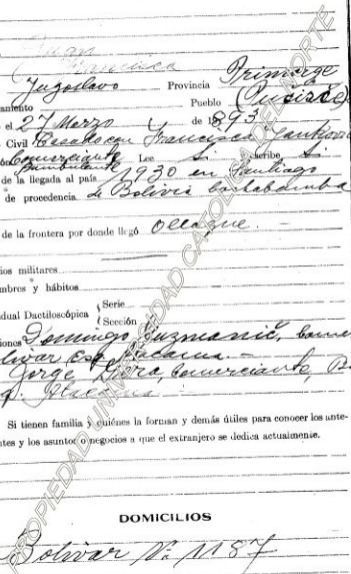 Juan
Francisca
Yugoslavo Provincia Primorge
amiento Pueblo
o el 27 Marzo de 1893
Civil Casado con Francisca
Comerciante Lee Si Escribe Si
Ambulante
de la llegada al país 1930 en Santiago
de procedencia de Bolivia Cochabamba
de la frontera por donde llegó Ollague.
ios militares
mbres y hábitos
idual Dactiloscópica { Serie
Sección
iones Domingo Kuzmanic, Comer
livar Esq.
Jorge comerciante, B
Si tienen familia y quiénes la forman y demás útiles para conocer los ante-
ntes y los asuntos o negocios a que el extranjero se dedica actualmente.
DOMICILIOS
Bolivar No. 1187
PROPIEDAD UNIVERSIDAD CATOLICA DEL NORTE